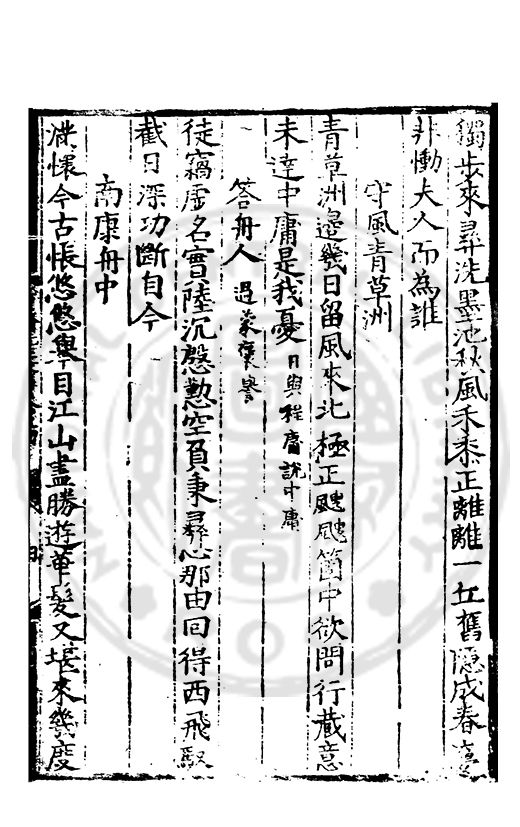 獨步來尋洗墨池秋風禾黍正離離一丘舊隱成春夢
非慟夫人而為誰
守風青草洲
青草洲邊幾日留風來北極正颼颼箇中欲問行藏意
未達中庸是我憂日與程膺說中庸
答舟人過蒙褒譽
徒竊虛名實陸沉慇懃空負秉彝心那由回得西飛馭
截日深功斷自今
南康舟中
懷今古悵悠悠舉目江山盡勝遊華髮又堪來幾度